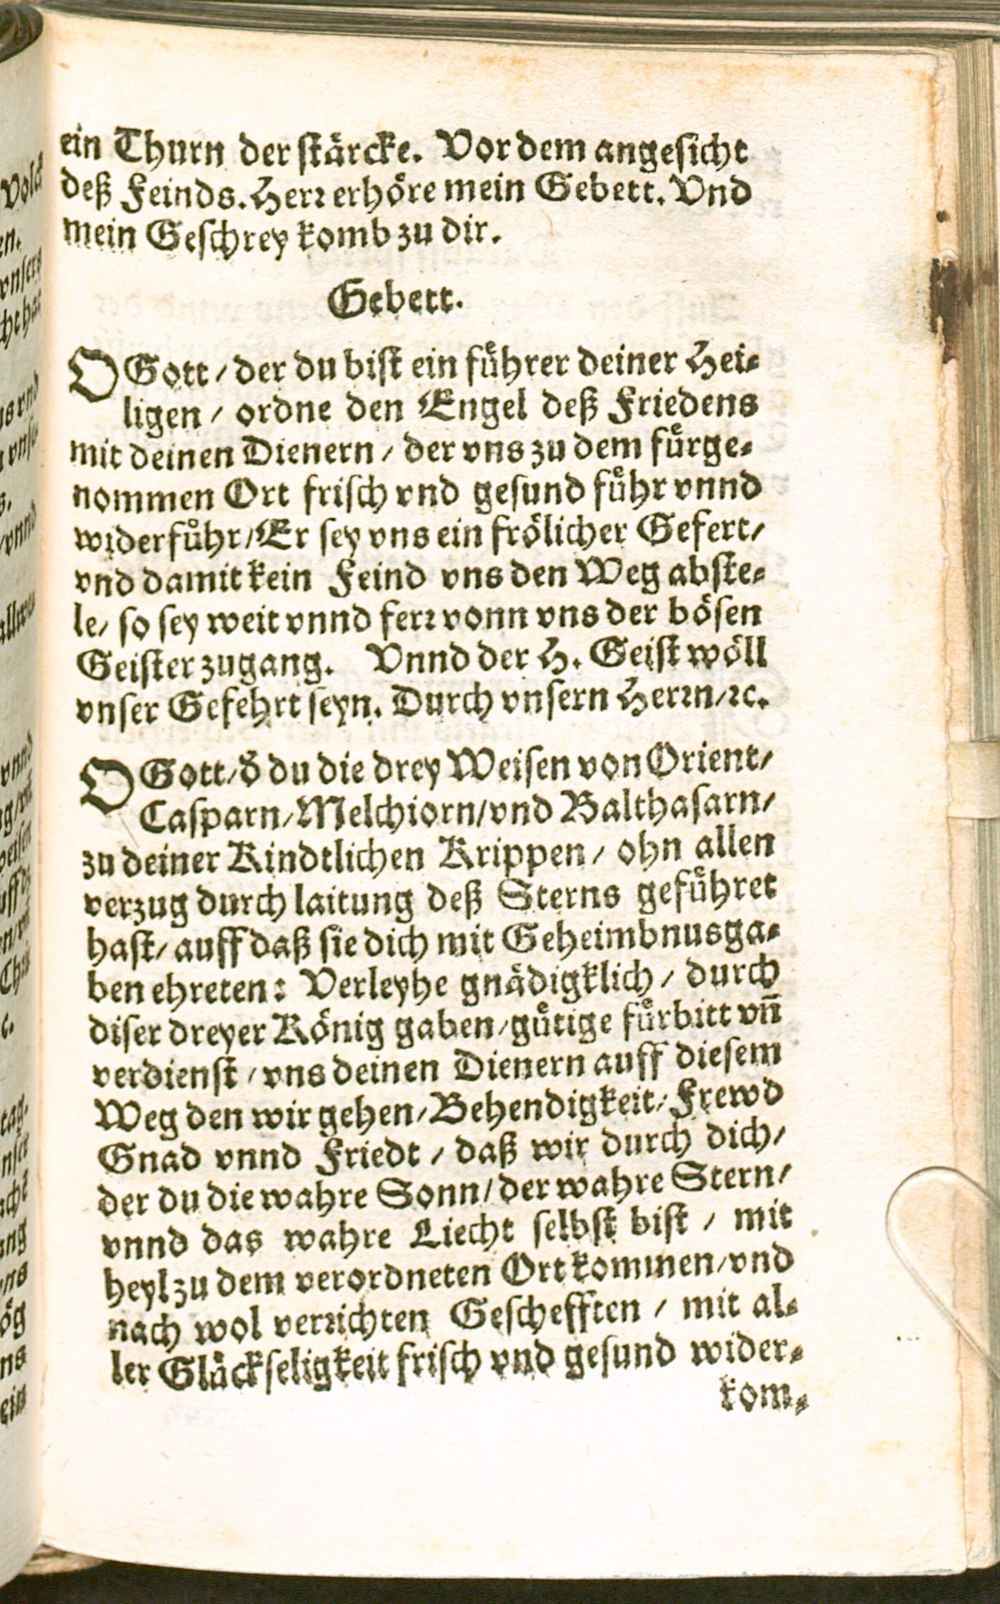 ein Thurn der stärcke. Vor dem angesicht
deß Feinds. Herr erhöre mein Gebett. Vnd
mein Geschrey komb zu dir.
Gebett.
O Gott / der du bist ein führer deiner Hei-
ligen / ordne den Engel deß Friedens
mit deinen Dienern / der vns zu dem fürge-
nommen Ort frisch vnd gesund führ vnnd
widerführ / Er sey vns ein frölicher Gefert /
vnd damit kein Feind vns den Weg abste-
le / so sey weit vnnd ferr vonn vns der bösen
Geister zugang. Vnnd der H. Geist wöll
vnser Gefehrt seyn. Durch vnsern Herrn / ꝛc.
O Gott / ð du die drey Weisen von Orient /
Casparn / Melchiorn / vnd Balthasarn /
zu deiner Kindtlichen Krippen / ohn allen
verzug durch laitung deß Sterns geführet
hast / auff daß sie dich mit Geheimbnusga-
ben ehreten: Verleyhe gnädigklich / durch
diser dreyer König gaben / gütige fürbitt vñ
verdienst / vns deinen Dienern auff diesem
Weg den wir gehen / Behendigkeit / Frewd
Gnad vnnd Friedt / daß wir durch dich /
der du die wahre Sonn / der wahre Stern /
vnnd das wahre Liecht selbst bist / mit
heyl zu dem verordneten Ort kommen / vnd
nach wol verrichten Geschefften / mit al-
ler Glückseligkeit frisch vnd gesund wider-
kom-